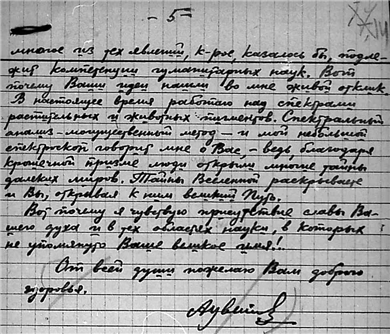 - 5 -
многое из тех явлений, к-рое, казалось бы, подле-
жит компетенции гуманитарных наук. Вот
почему Ваши идеи нашли во мне живой отклик.
В настоящее время работаю над спектрами
растительных и животных пигментов. Спектральный
анализ - могущественный метод - и мой небольшой
спектроскоп говорит мне о Вас - ведь благодаря
крошечной призме люди открыли многие тайны
далеких миров. Тайны Вселенной раскрываете
и Вы, открывая к ним великий Путь.
Вот почему я чувствую присутствие славы Ва-
шего духа и в тех областях науки, в которых
не упомянуто Ваше великое имя!.
От всей души пожелаю Вам доброго
здоровья.